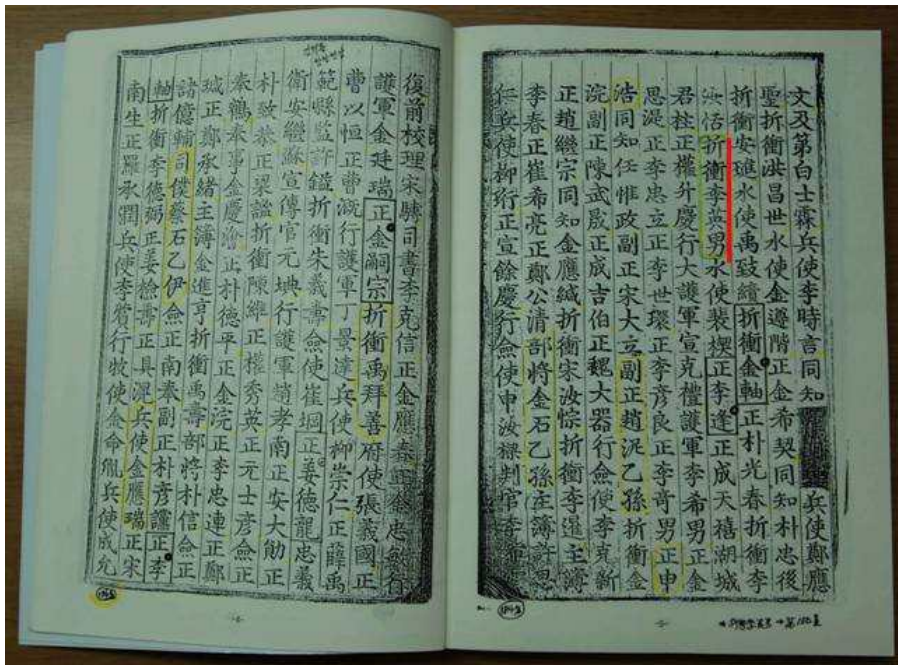 文及第白士霖兵使李時言同知兵使鄭應
聖折衝洪昌世水使金遵階正金希契同知朴忠後
折衝安進水使禹致績折衝金軸正朴光春折衝李
汝恬折衝李英男水使裴楔正李逢正成天禧湖城
君柱正權升慶行大護軍宣克禮護軍李希男正金
思湜正李忠立正李世環正李彦良正李奇男正申
浩同知任惟政副正宋大立副正趙泥乙孫折衝金
浣副正陳武晟正成吉伯正魏大器行僉使李克新
正趙繼宗同知金應緘折衝宋汝悰折衝李暹主簿
李春正崔希亮正鄭公清部將金石乙孫主簿許
仁兵使柳珩正宣餘慶行僉使申汝樑判官李
復前校理宋騁司書李克信正金應泰正金忠敏行
護軍金廷瑞正金嗣宗折衝禹拜善府使張義國正
曹以恒正曹漑行護軍丁景達兵使柳崇仁正薛禹
範縣監許鎰折衝朱義壽僉使崔堈正姜德龍忠義
衛安繼蘇宣傳官元坤行護軍趙孝南正安大勛正
朴致恭正梁謐折衝陳維正權秀英正元士彦僉正
奉鶴奉事金慶正朴德平正金浣正李忠連正鄭
珹正鄭承緖主簿金進亨折衝禹壽部將朴信僉正
諸億輔司僕蔡石乙伊僉正南奉副正朴彦謹正李
軸折衝李德弼正姜檜壽正具滉兵使金應瑞正宋
南生正羅承潤兵使李賓行牧使金命胤兵使成允